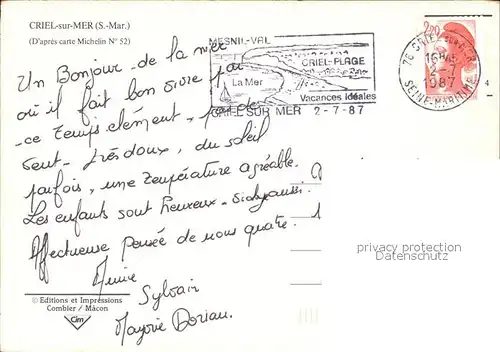 CRIEL-sur-MER (S.-Mar.)
(D'après carte Michelin N° 52)
MESNIL-VAL
CRIEL-PLAGE
La Mer
Vacances idéales
CRIEL SUR MER 2-7-87
2,20
76 CRIEL SUR MER
16H45
2-7
1987
SEINE-MARITIME
4
Un Bonjour de la mer
où il fait bon vivre par
ce temps clément - pas de
vent - très doux, du soleil
parfois, une température agréable.
Les enfants sont heureux -
Affectueuse pensée de nous quatre.
Sylvain
Marjorie Dorian.
privacy protection
Datenschutz
© Editions et Impressions
Combier / Mâcon
Cim